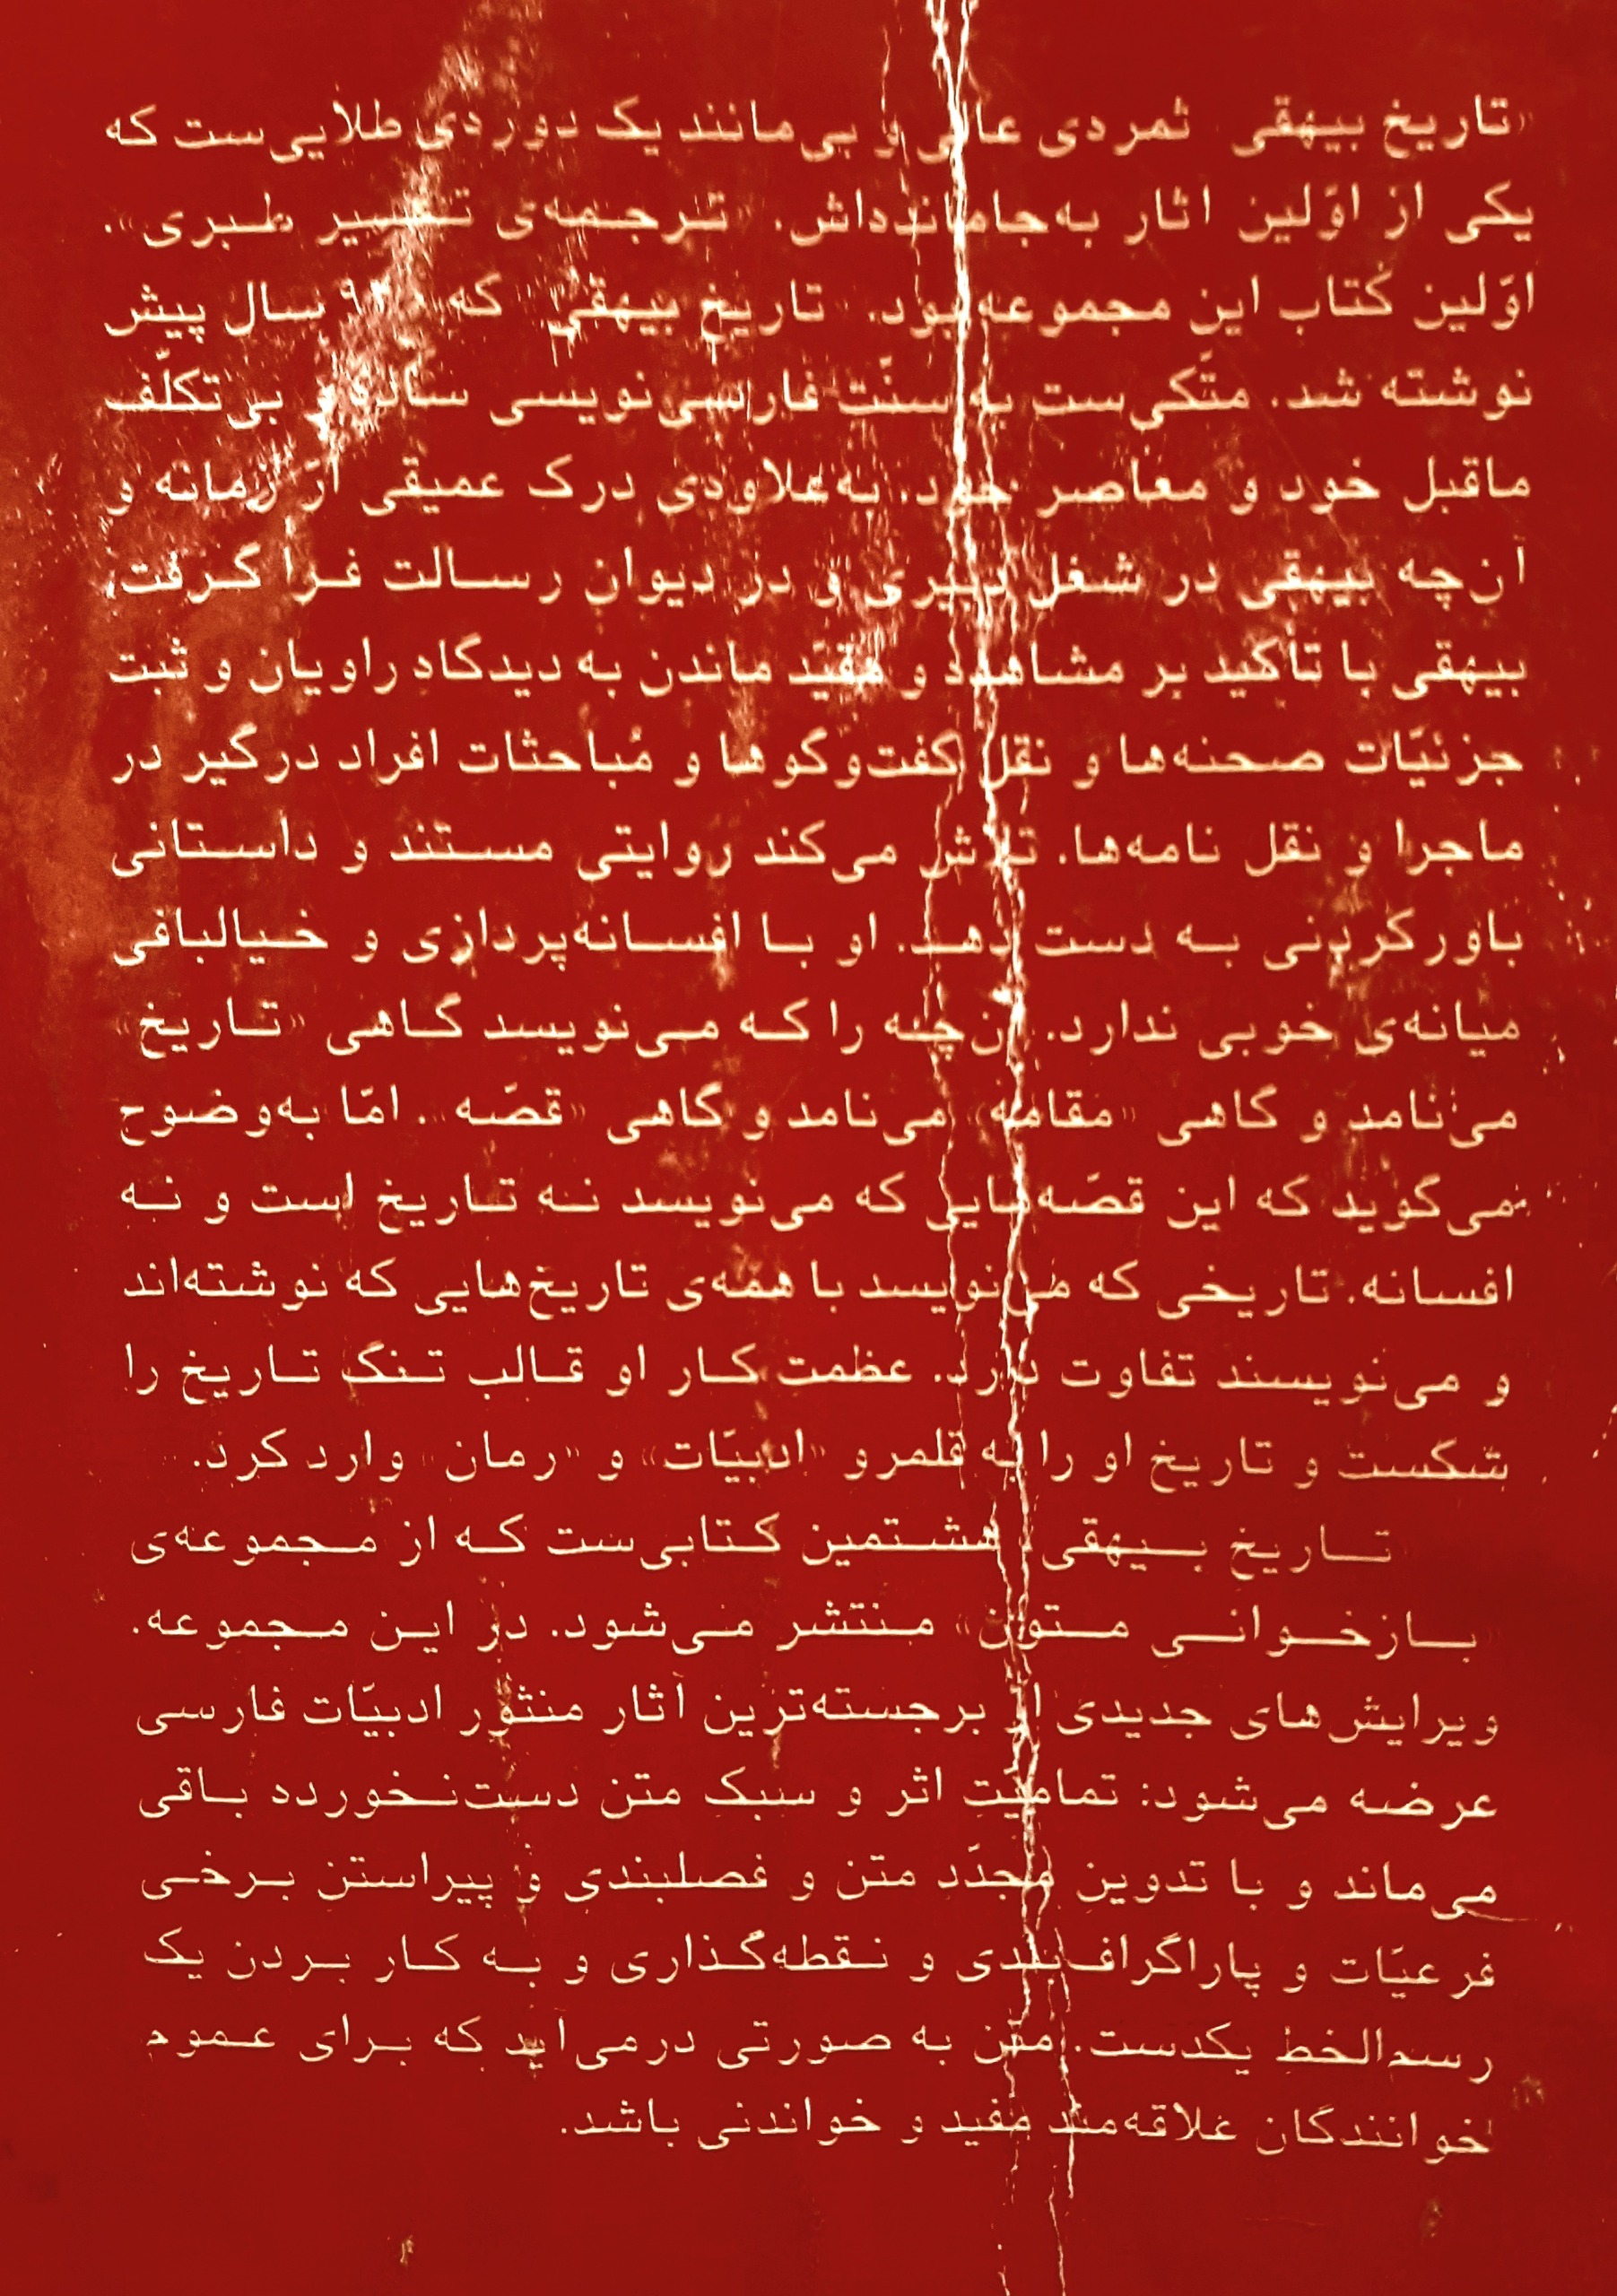 «تاریخ بیهقی» ثمره‌ی عالی و بی‌مانند یک دوره‌ی طلایی‌ست که
یکی از اوّلین آثار به‌جامانده‌اش، «ترجمه‌ی تفسیر طبری»،
اوّلین کتاب این مجموعه بود. «تاریخ بیهقی» که سال پیش
نوشته شد، متّکی‌ست به سنّت فارسی‌نویسی ساده و بی‌تکلّف
ماقبل خود و معاصر خود، به‌علاوه‌ی درک عمیقی از زمانه و
آن‌چه بیهقی در شغل دبیری و در دیوان رسالت فرا گرفت،
بیهقی با تأکید بر مشاهده و مقیّد ماندن به دیدگاه راویان و ثبت
جزئیّات صحنه‌ها و نقل گفت‌وگوها و مُباحثات افراد درگیر در
ماجرا و نقل نامه‌ها، تلاش می‌کند روایتی مستند و داستانی
باورکردنی به دست دهد. او با افسانه‌پردازی و خیالبافی
میانه‌ی خوبی ندارد. آن‌چه را که می‌نویسد گاهی «تاریخ»
می‌نامد و گاهی «مقامه» می‌نامد و گاهی «قصّه». امّا به‌وضوح
می‌گوید که این قصّه‌هایی که می‌نویسد نه تاریخ است و نه
افسانه. تاریخی که می‌نویسد با همه‌ی تاریخ‌هایی که نوشته‌اند
و می‌نویسند تفاوت دارد. عظمت کار او قالب تنگ تاریخ را
شکست و تاریخ او را به قلمرو «ادبیّات» و «رمان» وارد کرد.
«تاریخ بیهقی» هشتمین کتابی‌ست که از مجموعه‌ی
«بازخوانی متون» منتشر می‌شود. در این مجموعه،
ویرایش‌های جدیدی از برجسته‌ترین آثار منثور ادبیّات فارسی
عرضه می‌شود: تمامیّت اثر و سبک متن دست‌نخورده باقی
می‌ماند و با تدوین مجدّد متن و فصلبندی و پیراستن برخی
فرعیّات و پاراگراف‌بندی و نقطه‌گذاری و به کار بردن یک
رسم‌الخط یکدست، متن به صورتی درمی‌آید که برای عموم
خوانندگان علاقه‌مند مفید و خواندنی باشد.